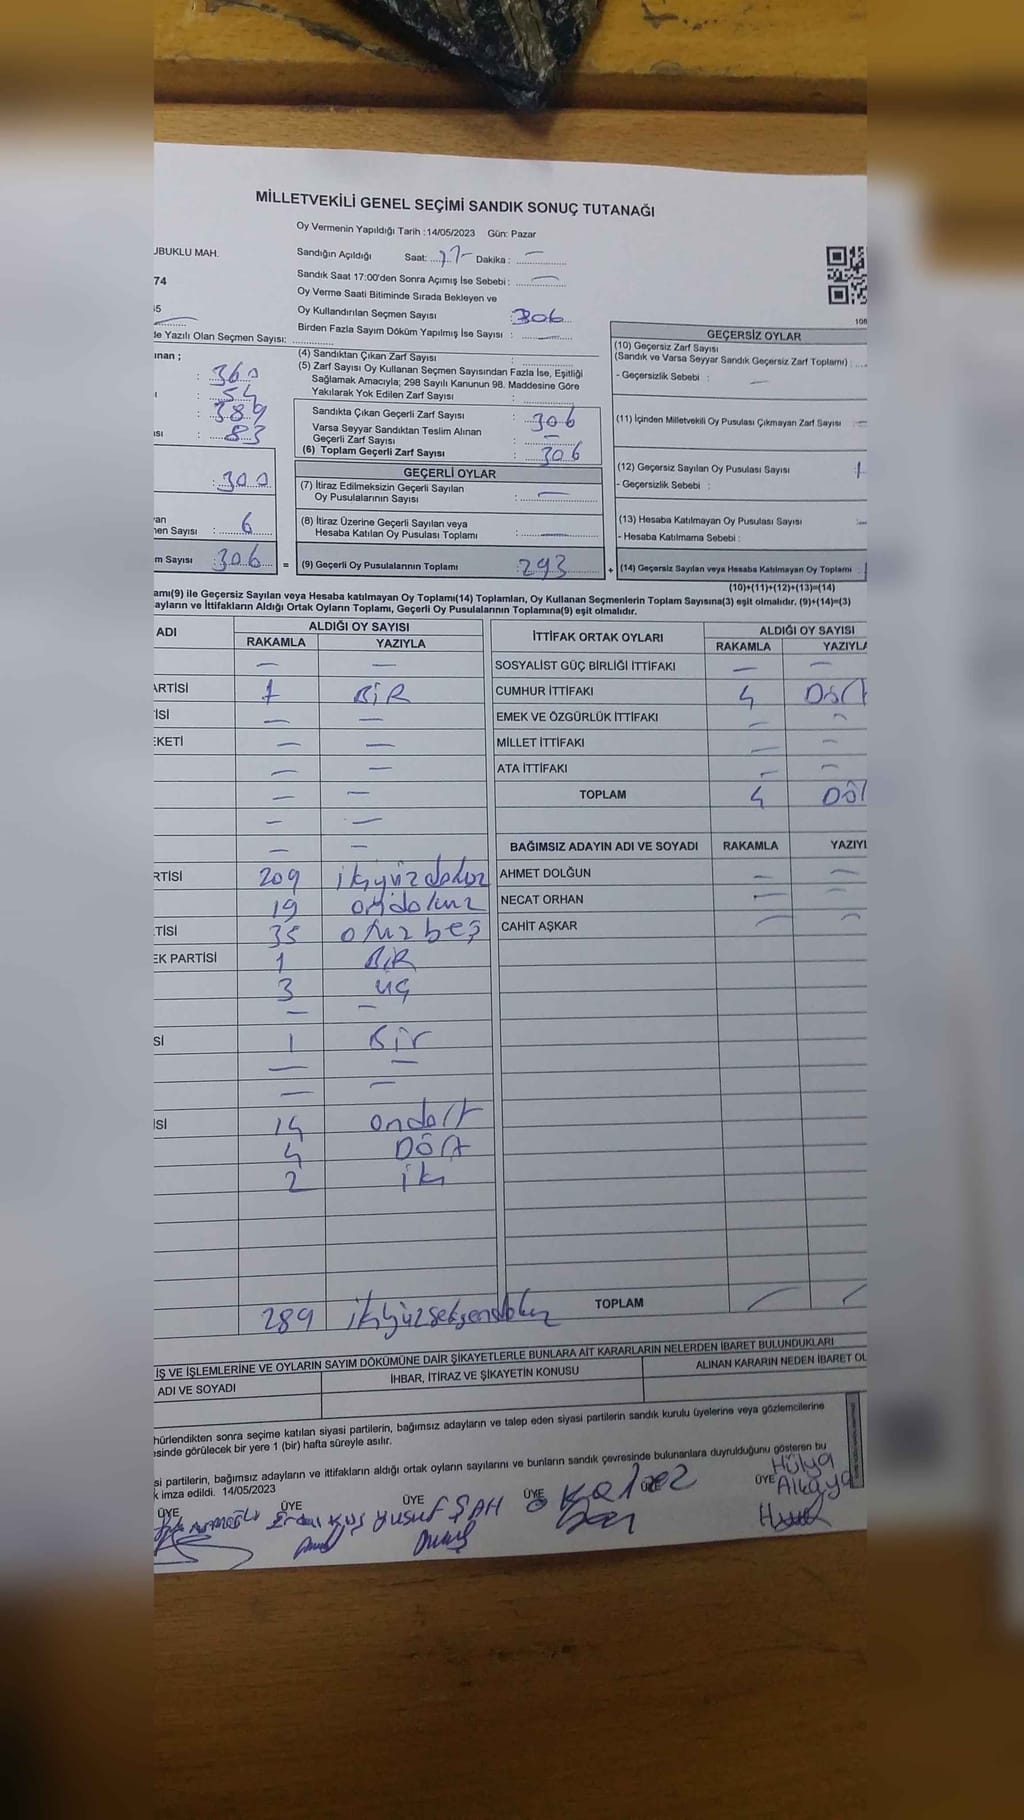 MİLLETVEKİLİ GENEL SEÇİMİ SANDIK SONUÇ TUTANAĞI
Oy Vermenin Yapıldığı Tarih :14/05/2023 Gün: Pazar
UBUKLU MAH.
Sandığın Açıldığı Saat: Dakika :
74
Sandık Saat 17:00'den Sonra Açımış İse Sebebi :
Oy Verme Saati Bitiminde Sırada Bekleyen ve
Oy Kullandırılan Seçmen Sayısı : 306
Birden Fazla Sayım Döküm Yapılmış İse Sayısı :
de Yazılı Olan Seçmen Sayısı:
ınan ;
: 360
: 54
: 389
ısı : 83
: 300
an
nen Sayısı : 6
m Sayısı : 306 =
(4) Sandıktan Çıkan Zarf Sayısı :
(5) Zarf Sayısı Oy Kullanan Seçmen Sayısından Fazla İse, Eşitliği
Sağlamak Amacıyla; 298 Sayılı Kanunun 98. Maddesine Göre
Yakılarak Yok Edilen Zarf Sayısı :
Sandıkta Çıkan Geçerli Zarf Sayısı : 306
Varsa Seyyar Sandıktan Teslim Alınan
Geçerli Zarf Sayısı : –
(6) Toplam Geçerli Zarf Sayısı : 306
GEÇERLİ OYLAR
(7) İtiraz Edilmeksizin Geçerli Sayılan
Oy Pusulalarının Sayısı : –
(8) İtiraz Üzerine Geçerli Sayılan veya
Hesaba Katılan Oy Pusulası Toplamı : –
(9) Geçerli Oy Pusulalarının Toplamı : 293 +
GEÇERSİZ OYLAR
(10) Geçersiz Zarf Sayısı
(Sandık ve Varsa Seyyar Sandık Geçersiz Zarf Toplamı) :
- Geçersizlik Sebebi : –
(11) İçinden Milletvekili Oy Pusulası Çıkmayan Zarf Sayısı : –
(12) Geçersiz Sayılan Oy Pusulası Sayısı :
- Geçersizlik Sebebi :
(13) Hesaba Katılmayan Oy Pusulası Sayısı :
- Hesaba Katılmama Sebebi :
(14) Geçersiz Sayılan veya Hesaba Katılmayan Oy Toplamı :
(10)+(11)+(12)+(13)=(14)
amı(9) ile Geçersiz Sayılan veya Hesaba katılmayan Oy Toplamı(14) Toplamları, Oy Kullanan Seçmenlerin Toplam Sayısına(3) eşit olmalıdır. (9)+(14)=(3)
ayların ve İttifakların Aldığı Ortak Oyların Toplamı, Geçerli Oy Pusulalarının Toplamına(9) eşit olmalıdır.
ADI ALDIĞI OY SAYISI
RAKAMLA YAZIYLA
– –
ARTİSİ 1 BİR
İSİ – –
EKETİ – –
– –
– –
– –
– –
RTİSİ 209 ikiyüzdokuz
19 ondokuz
TİSİ 35 otuzbeş
EK PARTİSİ 1 BİR
3 üç
– –
Sİ 1 Bir
– –
– –
ISI 14 ondört
4 DÖRT
2 iki
289 ikiyüzseksendokuz
İTTİFAK ORTAK OYLARI ALDIĞI OY SAYISI
RAKAMLA YAZIYLA
SOSYALİST GÜÇ BİRLİĞİ İTTİFAKI – –
CUMHUR İTTİFAKI 4 Dört
EMEK VE ÖZGÜRLÜK İTTİFAKI – –
MİLLET İTTİFAKI – –
ATA İTTİFAKI – –
TOPLAM 4 Döl
BAĞIMSIZ ADAYIN ADI VE SOYADI RAKAMLA YAZIYL
AHMET DOLĞUN – –
NECAT ORHAN – –
CAHİT AŞKAR – –
TOPLAM
İŞ VE İŞLEMLERİNE VE OYLARIN SAYIM DÖKÜMÜNE DAİR ŞİKAYETLERLE BUNLARA AİT KARARLARIN NELERDEN İBARET BULUNDUKLARI
ADI VE SOYADI İHBAR, İTİRAZ VE ŞİKAYETİN KONUSU ALINAN KARARIN NEDEN İBARET OL
hürlendikten sonra seçime katılan siyasi partilerin, bağımsız adayların ve talep eden siyasi partilerin sandık kurulu üyelerine veya gözlemcilerine
esinde görülecek bir yere 1 (bir) hafta süreyle asılır.
si partilerin, bağımsız adayların ve ittifakların aldığı ortak oyların sayılarını ve bunların sandık çevresinde bulunanlara duyrulduğunu gösteren bu
k imza edildi. 14/05/2023
ÜYE ÜYE ÜYE ÜYE ÜYE
Yusuf ŞAH
Hülya
Alkaya